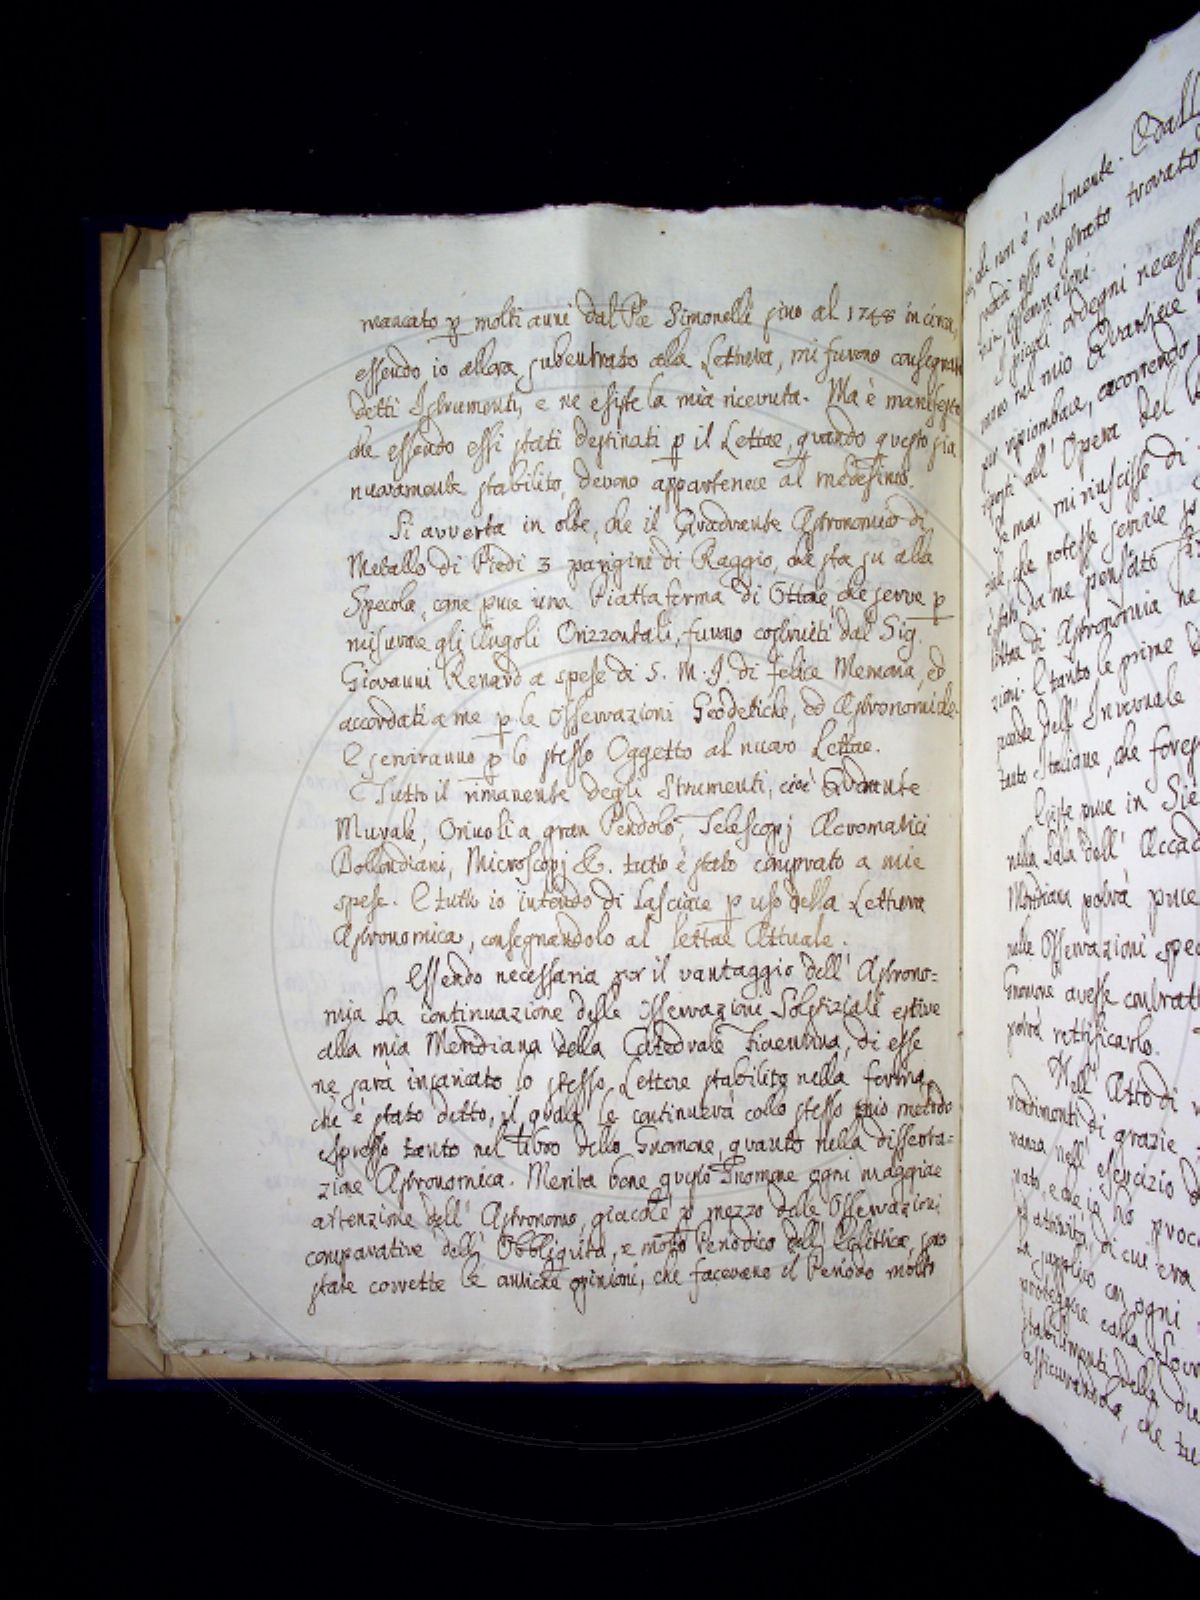 mancato p molti anni dal Pre Simonelli sino al 1748 in circa,
essendo io allora subentrato alla Lettura, mi furono consegnati
detti Istrumenti, e ne esiste la mia ricevuta. Ma è manifesto
che essendo essi stati destinati p il Lettore, quando questo sia
nuovamente stabilito, devono appartenere al medesimo.
Si avverta in oltre, che il Quadrante Astronomico di
Metallo di Piedi 3 parigini di Raggio, che sta su alla
Specola, come pure una Piattaforma di Ottone, che serve p
misurare gli Angoli Orizzontali, furono costruiti dal Sig.
Giovanni Renard a spese di S. M. I. di felice Memoria, ed
accordati a me p le Osservazioni Geodetiche, ed Astronomiche.
E serviranno p lo stesso Oggetto al nuovo Lettore.
Tutto il rimanente degli Strumenti, cioè Quadrante
Murale, Oriuoli a gran Pendolo, Telescopj Acromatici
Dollondiani, Microscopj &. tutto è stato comprato a mie
spese. E tutto io intendo di lasciare p uso della Lettura
Astronomica, consegnandolo al lettore Attuale.
Essendo necessaria per il vantaggio dell' Astrono=
mia la continuazione delle Osservazioni Solstiziali estive
alla mia Meridiana della Catedrale Fiorentina, di esse
ne sarà incaricato lo stesso Lettore stabilito nella forma,
che è stato detto, il quale le continuerà collo stesso mio metodo
espresso tanto nel libro dello Gnomone, quanto nella disserta=
zione Astronomica. Merita bene questo Gnomone ogni maggiore
attenzione dell' Astronomo, giacchè p mezzo delle Osservazioni
comparative dell' Obbliquità, e moto Periodico dell' Eclittica, sono
state corrette le antiche opinioni, che facevano il Periodo molto
che non è realmente. E dall
esso è stato trovato
osservazioni.
I piccoli ordegni necess
nel mio Quartiere
accorrendo
all' Opera del
Se mai mi riuscisse di
che potesse servire
da me pensato
di Astronomia ne
zioni. E tanto le prime
dell' Invernale
tanto Italiane, che fores
Esiste pure in Sie
nella Sala dell' Accad
Meridiana potrà pure
nelle Osservazioni spec
Gnomone avesse contratt
potrà rettificarlo.
Nell' Atto di
di grazie
nell' esercizio d
e che io ho proc
attività, di cui era
La supplico con ogni
proteggere colla Sovr
stabilimenti della
assicurandola, che tu